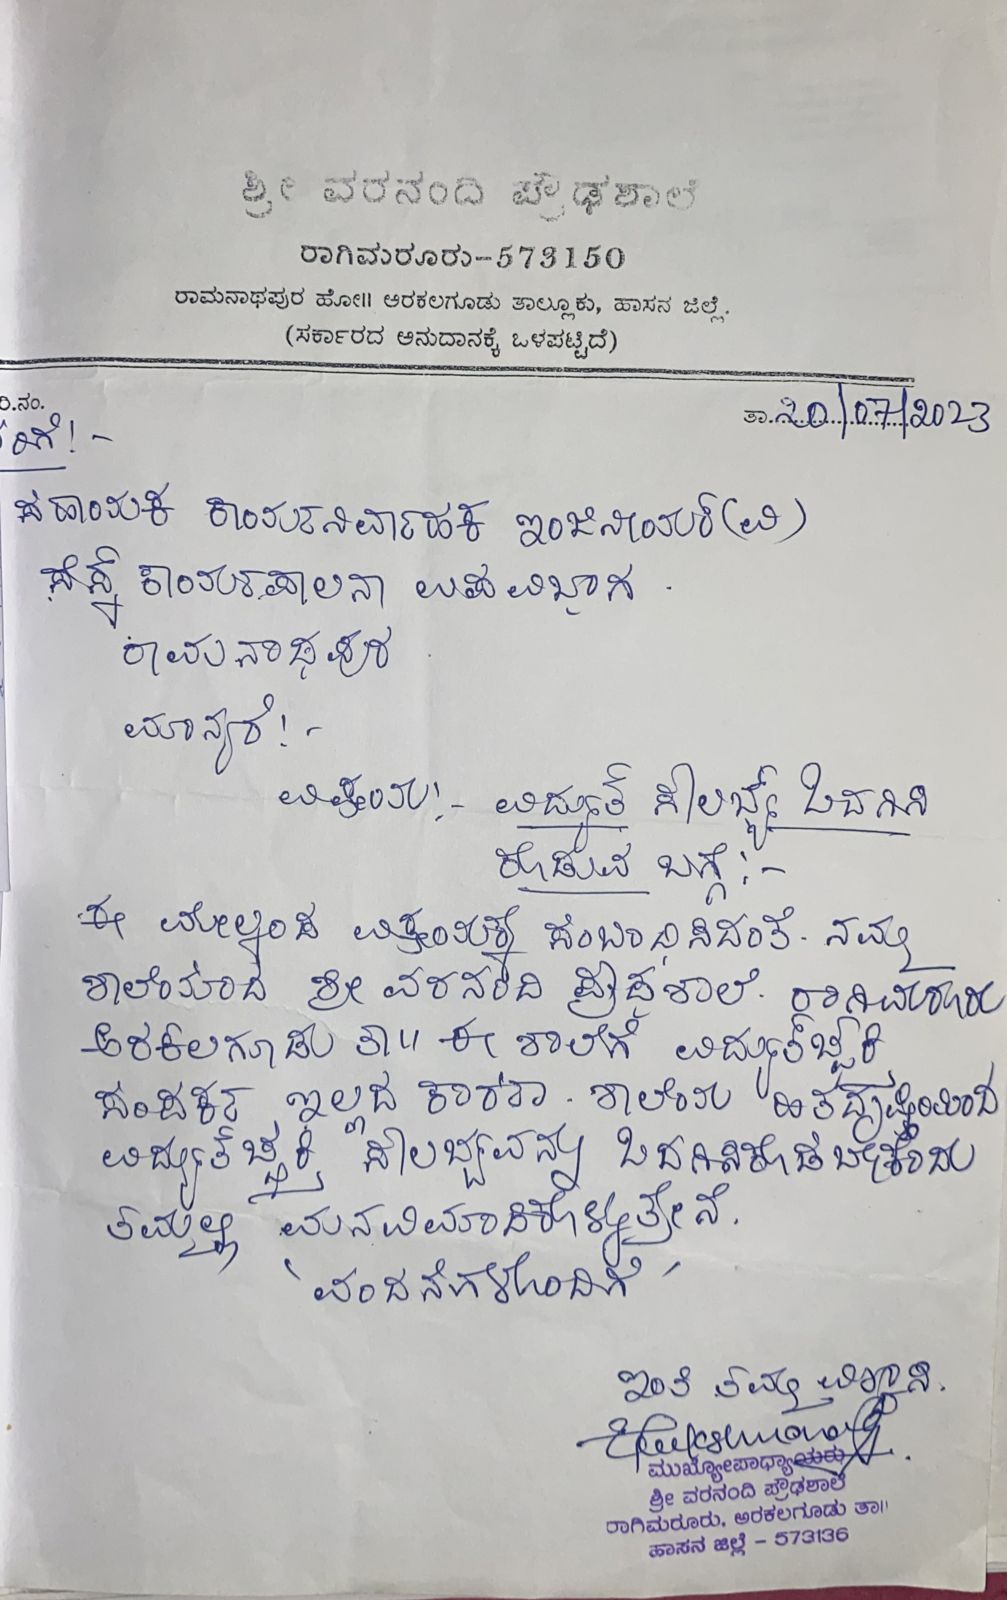 ಶ್ರೀ ವರನಂದಿ ಪ್ರೌಢಶಾಲೆ
ರಾಗಿಮರೂರು-573150
ರಾಮನಾಥಪುರ ಹೋ॥ ಅರಕಲಗೂಡು ತಾಲ್ಲೂಕು, ಹಾಸನ ಜಿಲ್ಲೆ.
(ಸರ್ಕಾರದ ಅನುದಾನಕ್ಕೆ ಒಳಪಟ್ಟಿದೆ)
ರಿ.ನಂ.
ತಾ. 20/07/2023
ರಿಗೆ!-
ಸಹಾಯಕ ಕಾರ್ಯನಿರ್ವಾಹಕ ಇಂಜಿನೀಯರ್(ವಿ)
ಸೆಸ್ಕ್ ಕಾರ್ಯಪಾಲನಾ ಉಪವಿಭಾಗ.
ರಾಮನಾಥಪುರ
ಮಾನ್ಯರೆ!-
ವಿಷಯ!- ವಿದ್ಯುತ್ ಸೌಲಭ್ಯ ಒದಗಿಸಿ
ಕೊಡುವ ಬಗ್ಗೆ:-
ಈ ಮೇಲ್ಕಂಡ ವಿಷಯಕ್ಕೆ ಸಂಬಂಧಿಸಿದಂತೆ. ನಮ್ಮ
ಶಾಲೆಯಾದ ಶ್ರೀ ವರನಂದಿ ಪ್ರೌಢಶಾಲೆ. ರಾಗಿಮರೂರು
ಅರಕಲಗೂಡು ತಾ॥ ಈ ಶಾಲೆಗೆ ವಿದ್ಯುತ್‌ಚ್ಛಕ್ತಿ
ಸಂಪರ್ಕ ಇಲ್ಲದ ಕಾರಣ. ಶಾಲೆಯ ಹಿತದೃಷ್ಟಿಯಿಂದ
ವಿದ್ಯುತ್‌ಚ್ಛಕ್ತಿ ಸೌಲಭ್ಯವನ್ನು ಒದಗಿಸಿಕೊಡಬೇಕೆಂದು
ತಮ್ಮಲ್ಲಿ ಮನವಿಮಾಡಿಕೊಳ್ಳುತ್ತೇನೆ.
'ವಂದನೆಗಳೊಂದಿಗೆ'
ಇಂತಿ ತಮ್ಮ ವಿಶ್ವಾಸಿ.
ಮುಖ್ಯೋಪಾಧ್ಯಾಯರು
ಶ್ರೀ ವರನಂದಿ ಪ್ರೌಢಶಾಲೆ
ರಾಗಿಮರೂರು, ಅರಕಲಗೂಡು ತಾ॥
ಹಾಸನ ಜಿಲ್ಲೆ - 573136